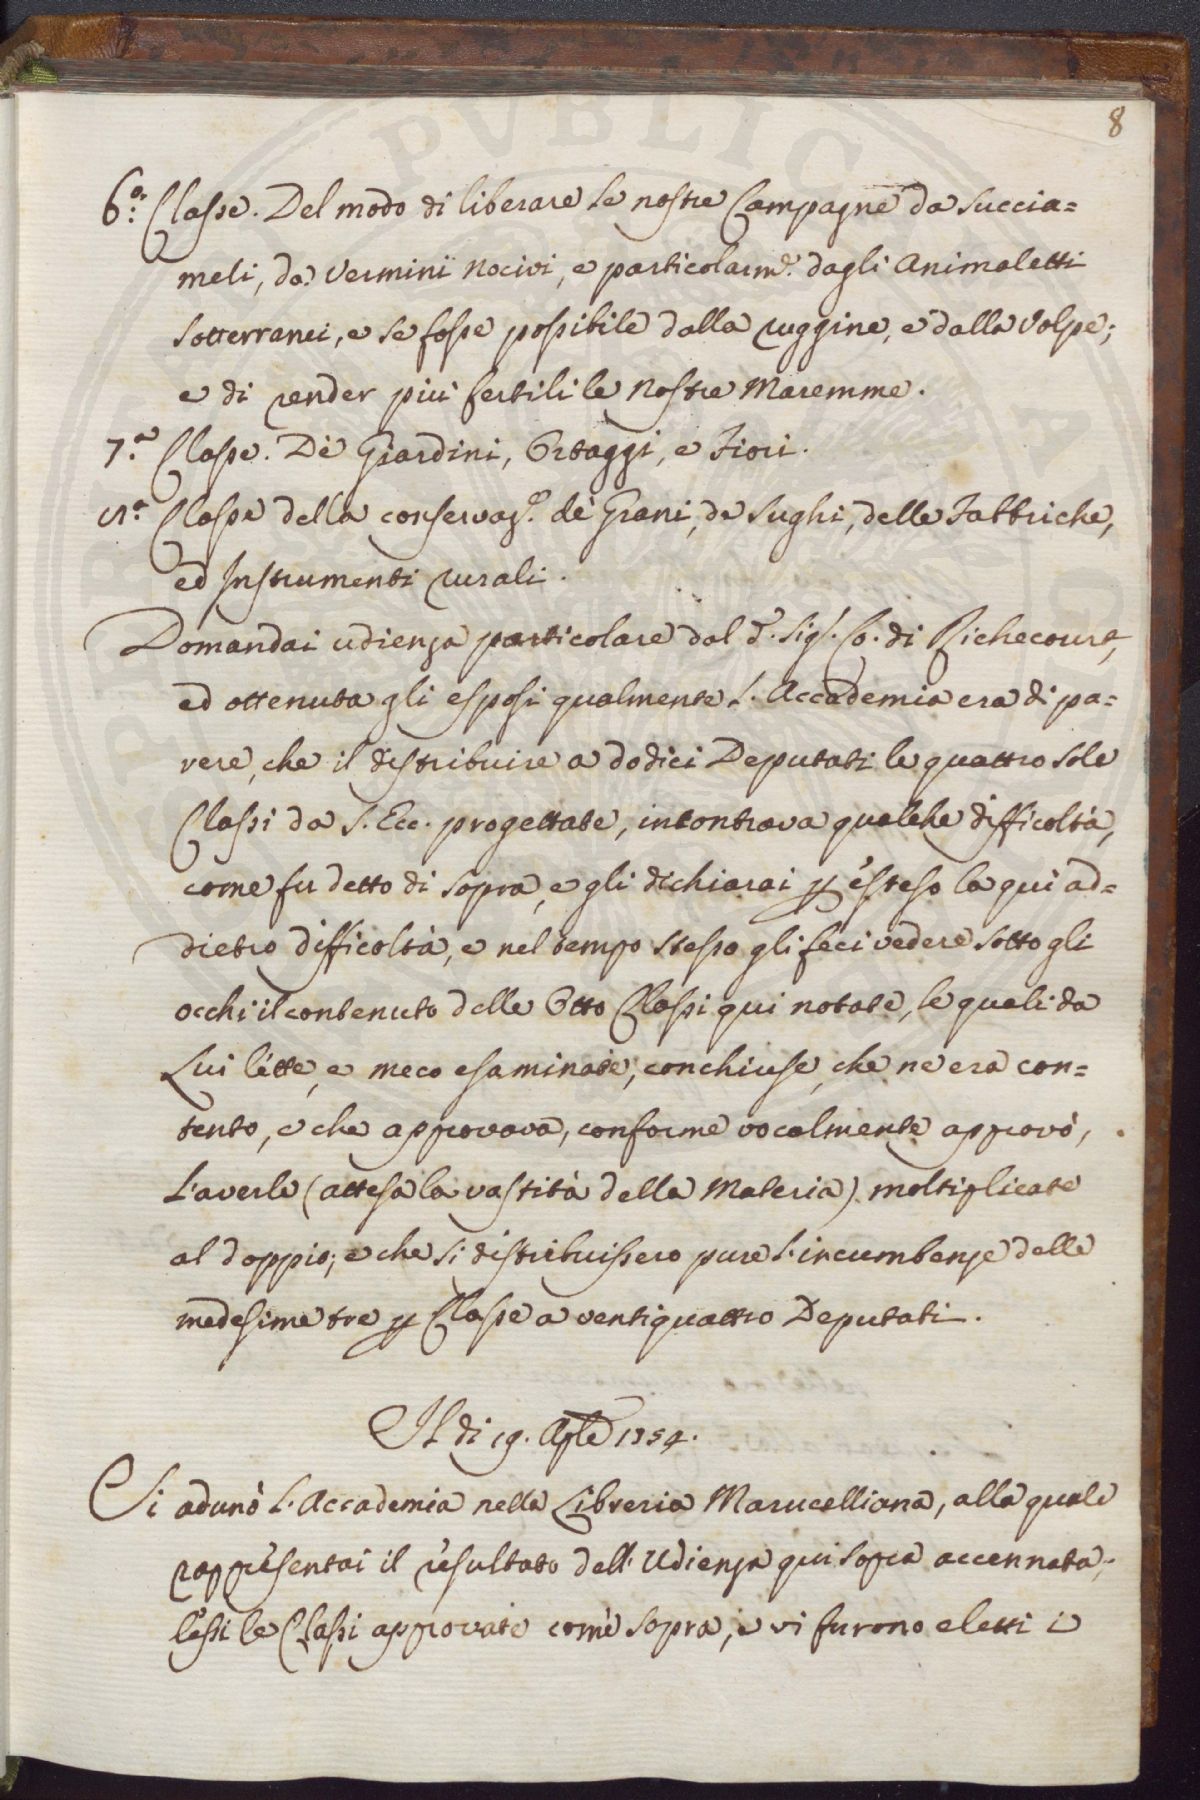 8
6.a Classe. Del modo di liberare le nostre Campagne da Succia=
meli, da' Vermini Nocivi, e particolarm.e dagli Animaletti
Sotterranei, e se fosse possibile dalla ruggine, e dalla Volpe;
e di render più fertili le Nostre Maremme.
7.a Classe. De' Giardini, Ortaggi, e Fiori.
Classe della conservaz.e de' Grani, de' Sughi, delle Fabbriche,
ed Instrumenti rurali.
Domandai udienza particolare dal d.o Sig.r Co. di Richecourt,
ed ottenuta gli esposi qualmente L'Accademia era di pa=
rere, che il distribuire a dodici Deputati le quattro sole
Classi da S. Ecc. progettate, incontrava qualche difficoltà,
come fu detto di sopra, e gli dichiarai p esteso la qui ad=
dietro difficoltà, e nel tempo stesso gli feci vedere sotto gli
occhi il contenuto delle Otto Classi qui notate, le quali da
Lui lette, e meco esaminate, conchiuse, che ne era con=
tento, e che approvava, conforme vocalmente approvò,
L'averle (attesa la vastità della Materia) moltiplicate
al doppio; e che si distribuissero pure l'incumbenze delle
medesime tre p Classe a ventiquattro Deputati.
Il di 19. Aple 1754.
Si adunò L'Accademia nella Libreria Marucelliana, alla quale
rappresentai il resultato dell'Udienza qui sopra accennata;
lessi le Classi approvate come sopra, e vi furono eletti i
PVBLIC